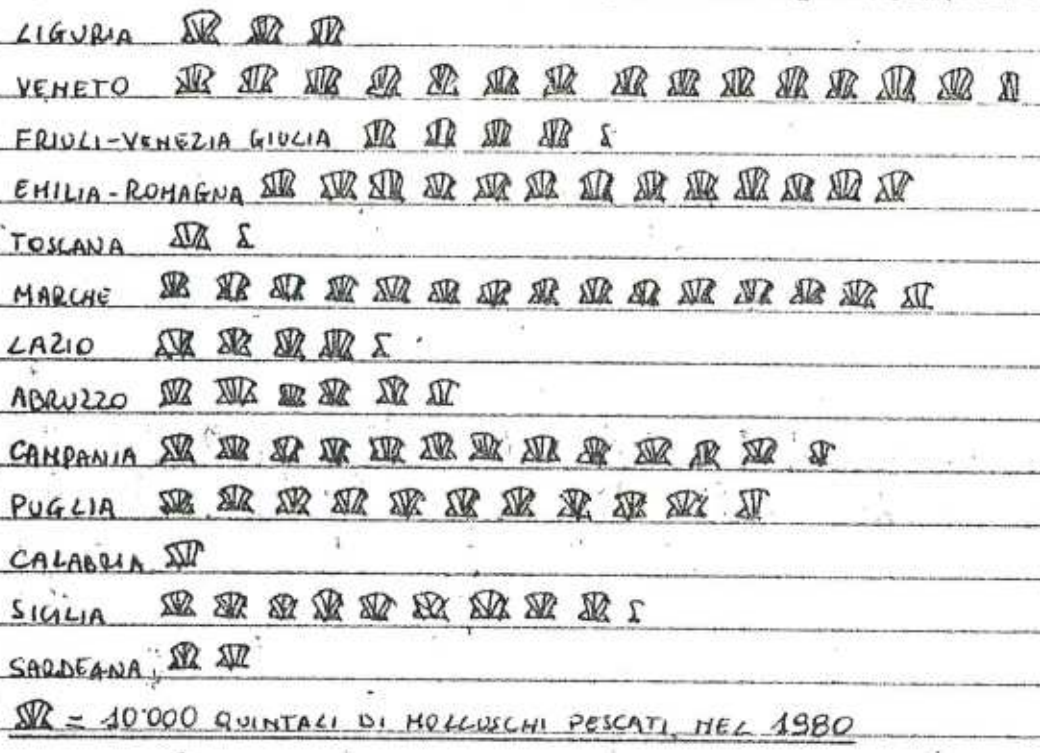 LIGURIA
VENETO
FRIULI-VENEZIA GIULIA
EMILIA-ROMAGNA
TOSCANA
MARCHE
LAZIO
ABRUZZO
CAMPANIA
PUGLIA
CALABRIA
SICILIA
SARDEGNA
= 10'000 QUINTALI DI MOLLUSCHI PESCATI NEL 1980